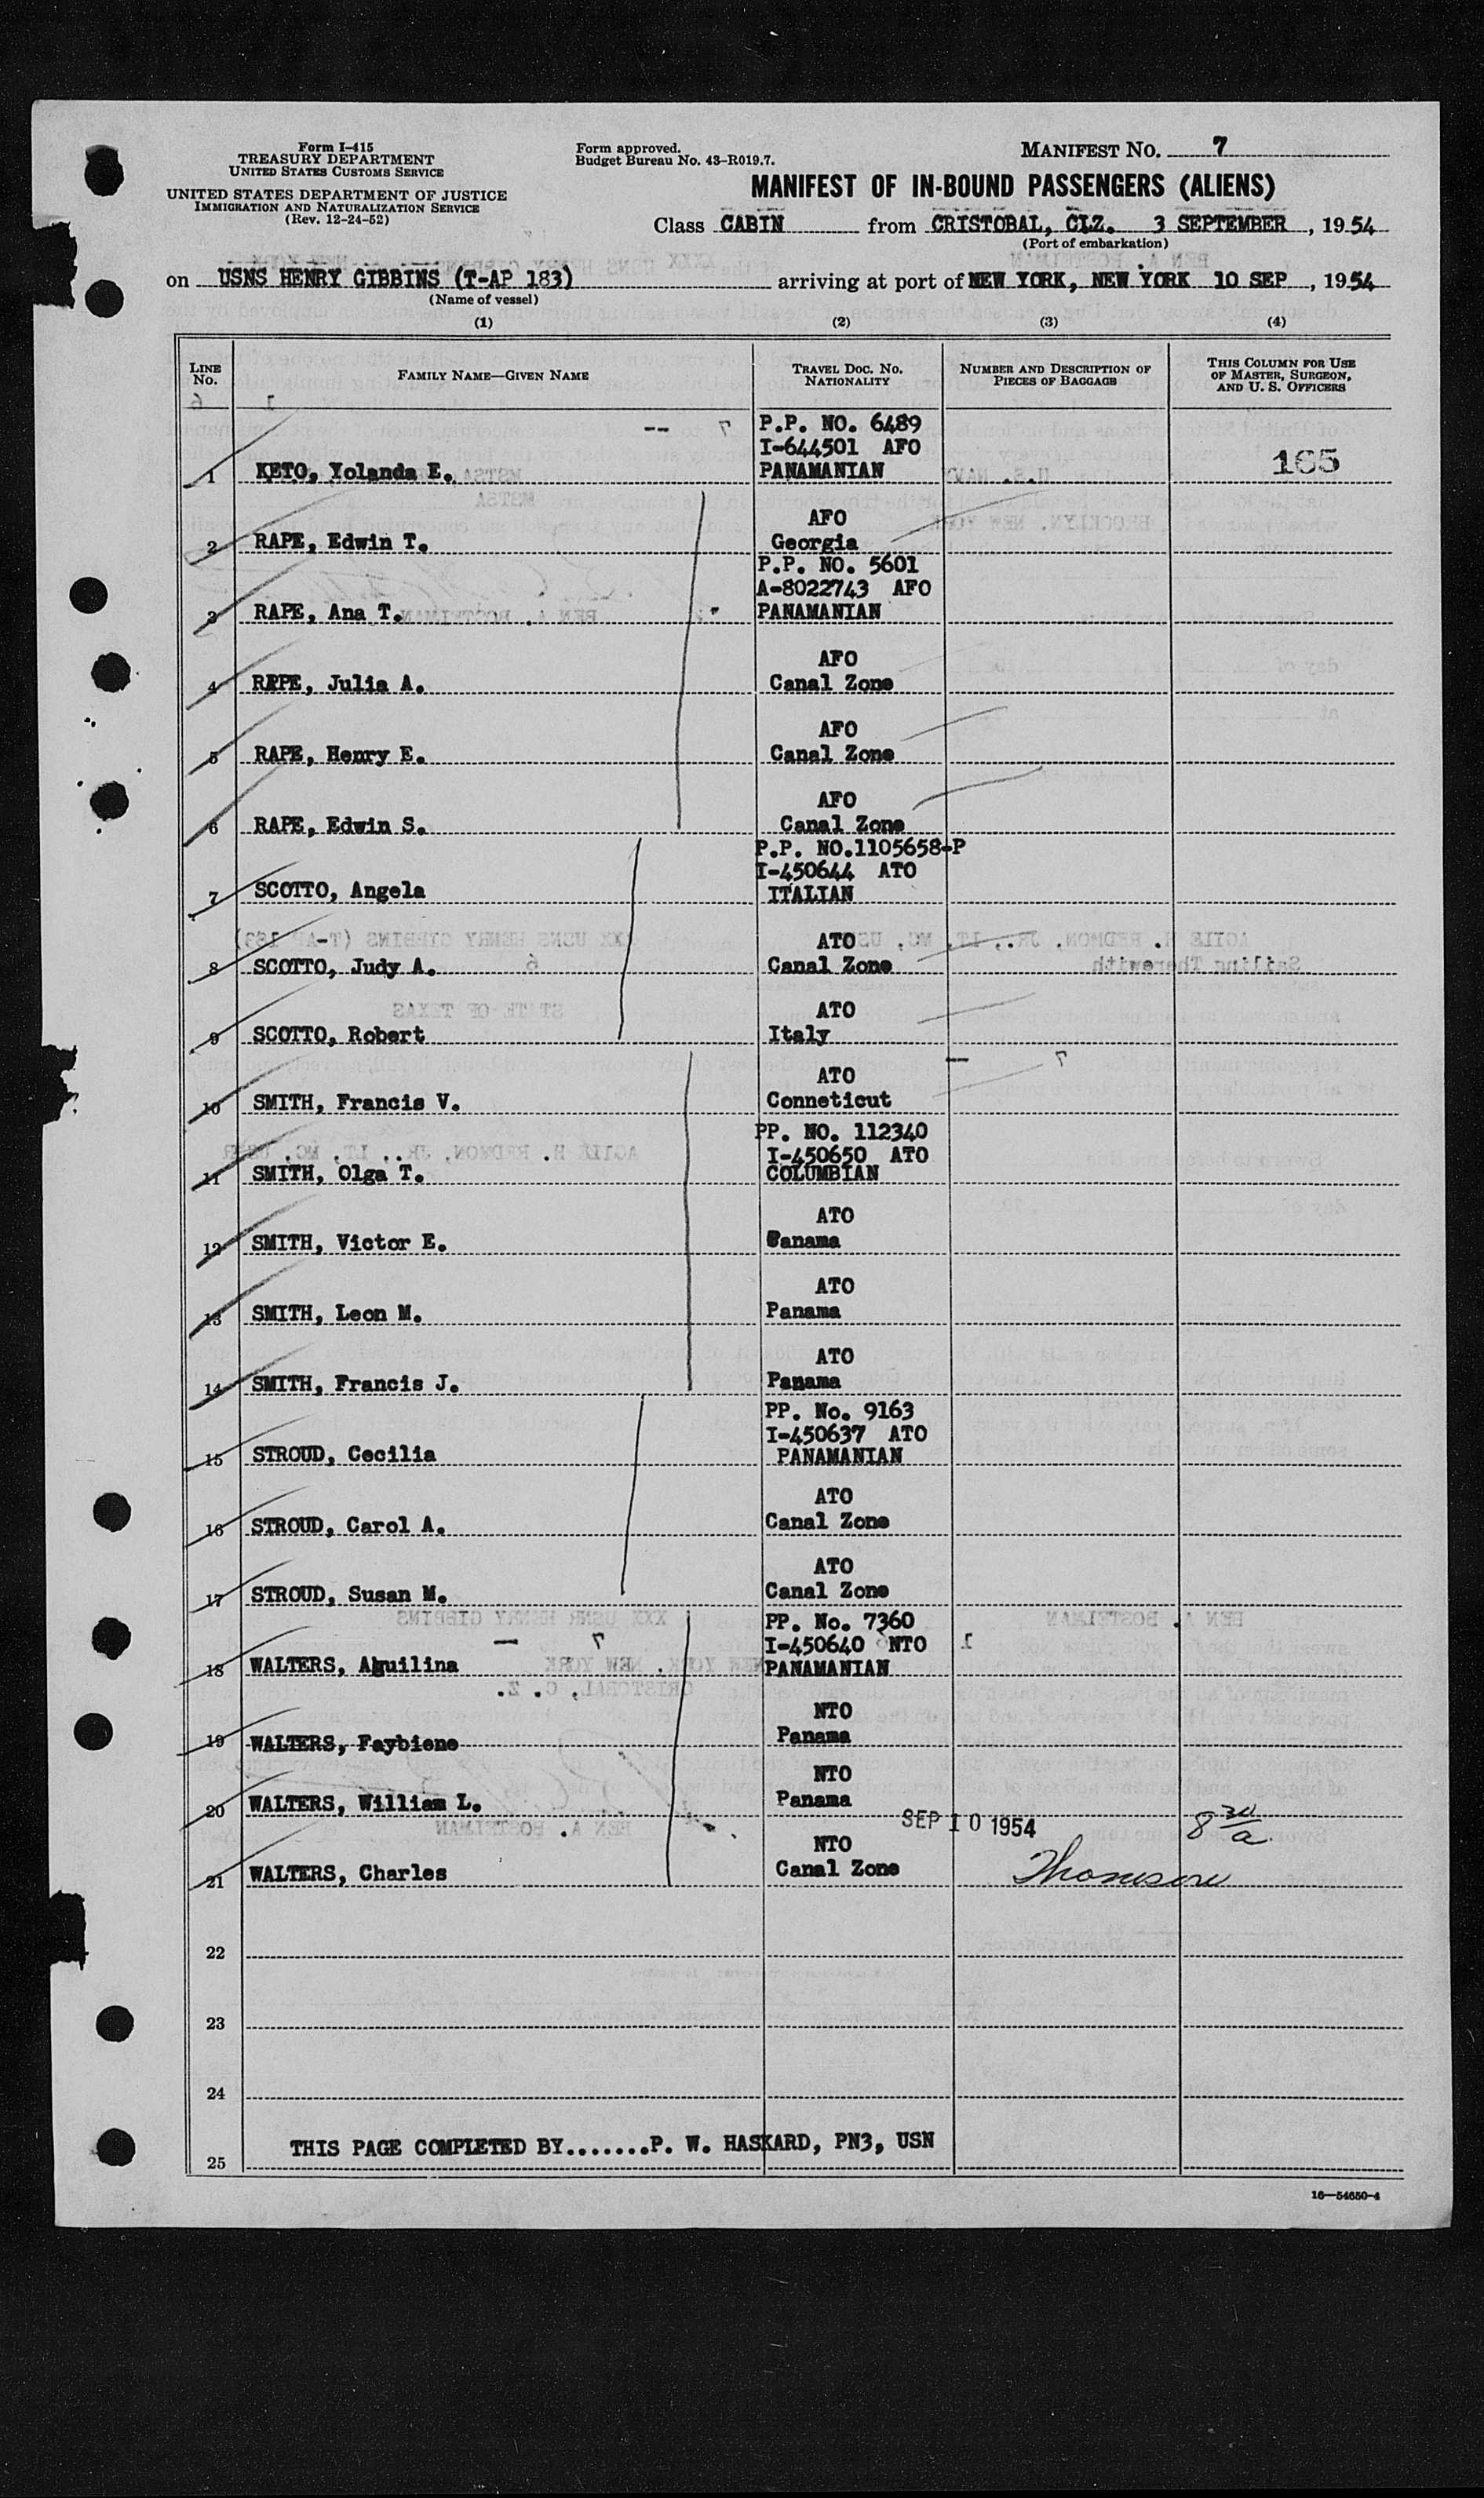 Form I-415
TREASURY DEPARTMENT
UNITED STATES CUSTOMS SERVICE
UNITED STATES DEPARTMENT OF JUSTICE
IMMIGRATION AND NATURALIZATION SERVICE
(Rev. 12-24-52)
Form approved.
Budget Bureau No. 43-R019.7.
MANIFEST NO. 7
MANIFEST OF IN-BOUND PASSENGERS (ALIENS)
Class CABIN from CRISTOBAL, CLZ. 3 SEPTEMBER, 1954
(Port of embarkation)
on USNS HENRY GIBBINS (T-AP 183) arriving at port of NEW YORK, NEW YORK 10 SEP, 1954
(Name of vessel)
(1) (2) (3) (4)
LINE NO. FAMILY NAME—GIVEN NAME TRAVEL DOC. NO. NATIONALITY NUMBER AND DESCRIPTION OF PIECES OF BAGGAGE THIS COLUMN FOR USE OF MASTER, SURGEON, AND U. S. OFFICERS
P.P. NO. 6489
I-644501 AFO
1 KETO, Yolanda E. PANAMANIAN 165
AFO
2 RAPE, Edwin T. Georgia
P.P. NO. 5601
A-8022743 AFO
3 RAPE, Ana T. PANAMANIAN
AFO
4 RAPE, Julia A. Canal Zone
AFO
5 RAPE, Henry E. Canal Zone
AFO
6 RAPE, Edwin S. Canal Zone
P.P. NO.1105658-P
I-450644 ATO
7 SCOTTO, Angela ITALIAN
ATO
8 SCOTTO, Judy A. Canal Zone
ATO
9 SCOTTO, Robert Italy
ATO
10 SMITH, Francis V. Conneticut
PP. NO. 112340
I-450650 ATO
11 SMITH, Olga T. COLUMBIAN
ATO
12 SMITH, Victor E. Panama
ATO
13 SMITH, Leon M. Panama
ATO
14 SMITH, Francis J. Panama
PP. No. 9163
I-450637 ATO
15 STROUD, Cecilia PANAMANIAN
ATO
16 STROUD, Carol A. Canal Zone
ATO
17 STROUD, Susan M. Canal Zone
PP. No. 7360
I-450640 NTO
18 WALTERS, Aguilina PANAMANIAN
NTO
19 WALTERS, Faybiene Panama
NTO
20 WALTERS, William L. Panama
SEP 10 1954 8 30/a
NTO
21 WALTERS, Charles Canal Zone
22
23
24
THIS PAGE COMPLETED BY.......P. W. HASKARD, PN3, USN
25
16—54650-4